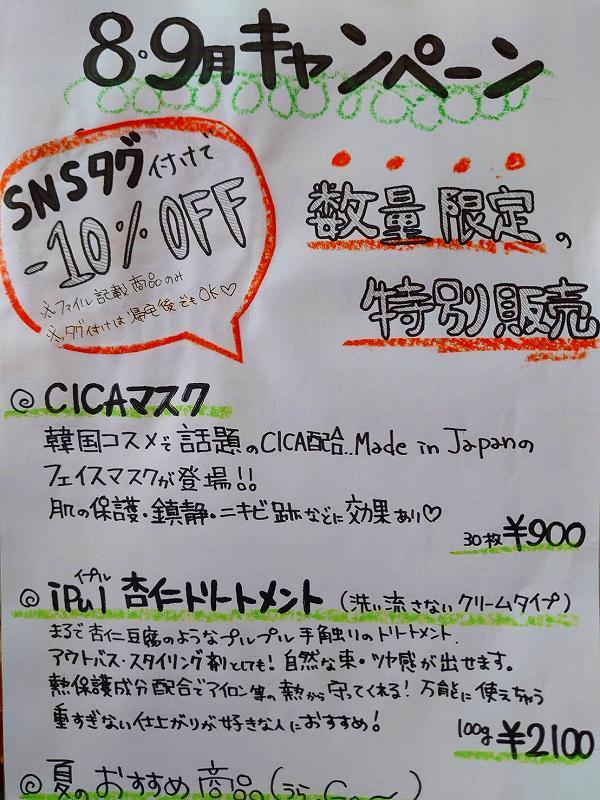 8・9月キャンペーン
SNSタグ付けで
-10% OFF
※ファイル記載商品のみ
※タグ付けは帰宅後でもOK♡
数量限定の
特別販売
◎ CICAマスク
韓国コスメで話題のCICA配合..Made in Japanの
フェイスマスクが登場!!
肌の保護・鎮静・ニキビ跡などに効果あり♡
30枚 ¥900
イプル
◎ iPul 杏仁トリートメント (洗い流さないクリームタイプ)
まるで杏仁豆腐のようなプルプル手触りのトリートメント.
アウトバス・スタイリング剤としても! 自然な束・ツヤ感が出せます。
熱保護成分配合でアイロン等の熱から守ってくれる! 万能に使えちゃう
重すぎない仕上がりが好きな人におすすめ!
100g ¥2100
◎ 夏のおすすめ商品